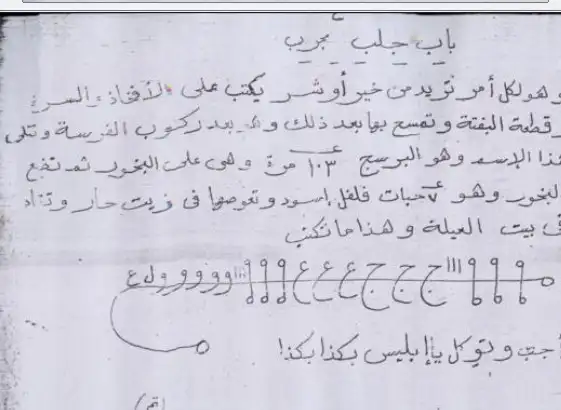 باب جلب مجرب
وهو لكل أمر تريد من خير أو شر يكتب على الأفخاذ والسرة
وقطعة البفتة وتمسح بها بعد ذلك وهو بعد ركوب الفرسة وتلى
هذا الاسم وهو البرسج ١٠٣ مرة وهي على البخور ثم تضع
البخور وهو ٧ حبات فلفل اسود وتغوصها في زيت حار وتقاد
في بيت العيلة وهذا ما تكتب
٩ ٩ ٩ ااا ج ج ج ع ع ع ٩ ٩ ٩ ااا و و و و ل ع
أجب وتوكل يا إبليس بكذا بكذا